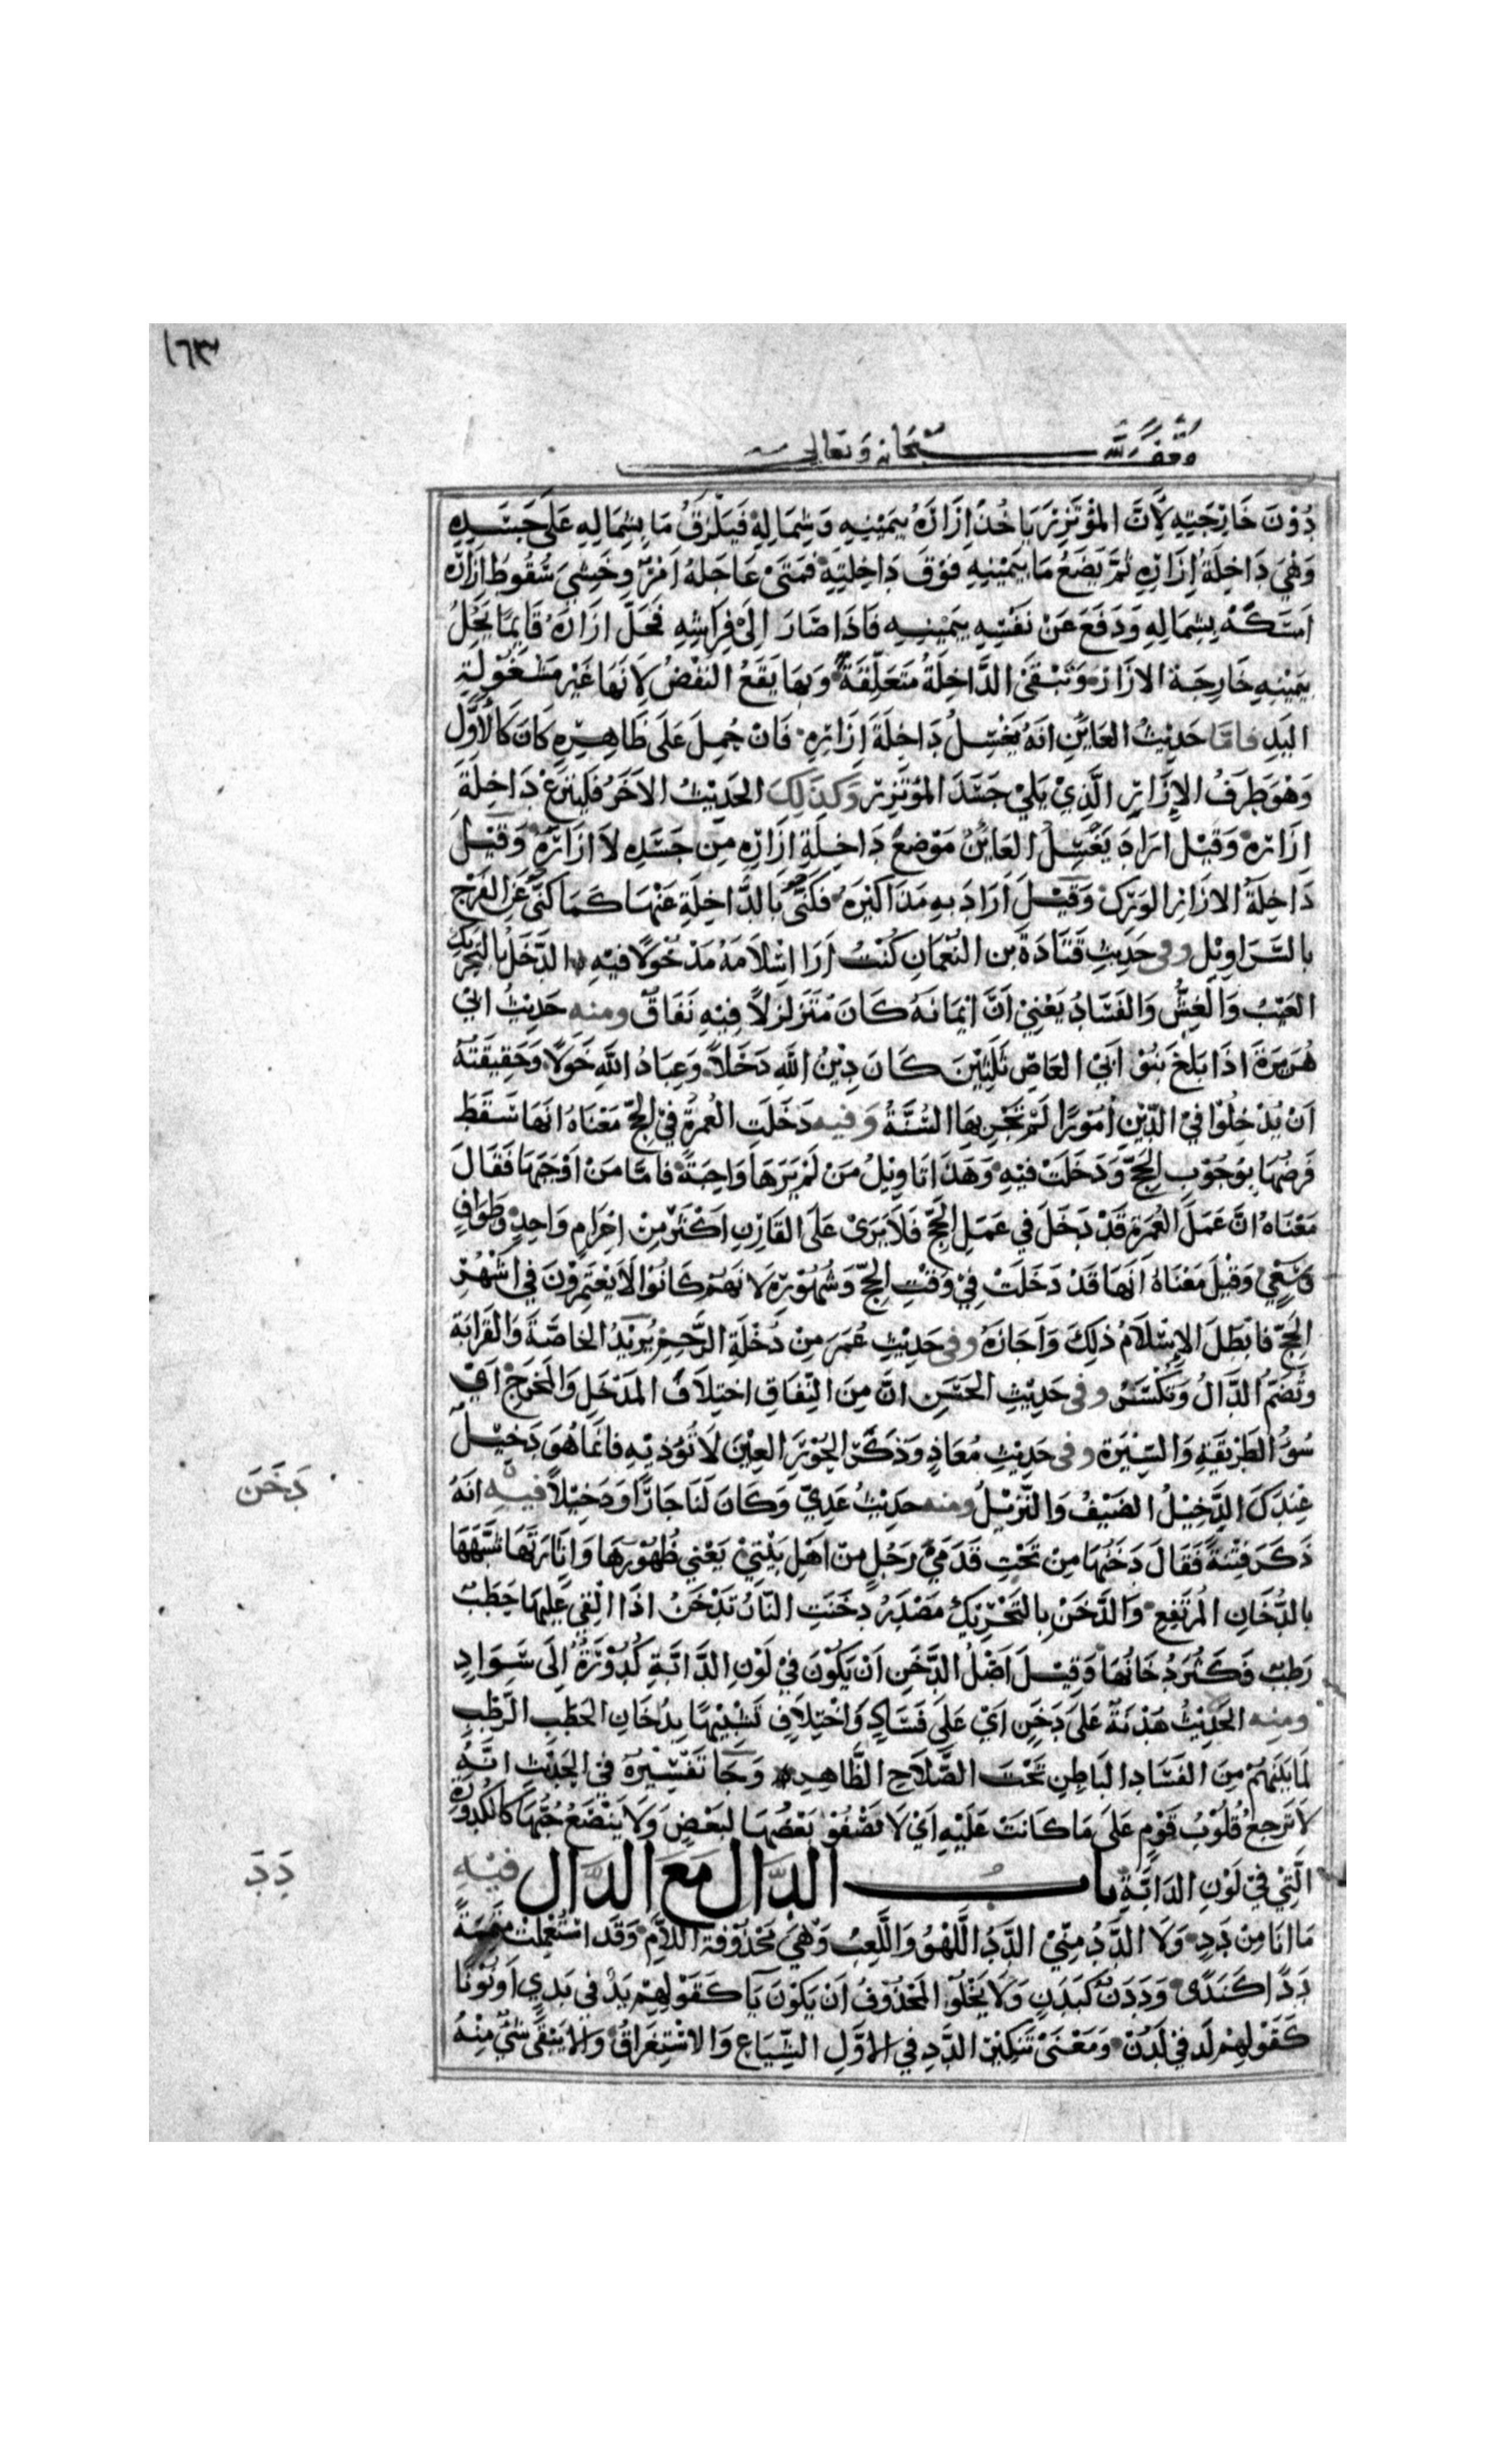 ١٦٣
وقف لله سبحانه وتعالى
دُوْنَ خَارِجَتِهِ لِأَنَّ المُؤْتَزِرَ يَاخُذُ اِزَارَهُ بِيَمِيْنِهِ وَشِمَالِهِ فَيَلْزَقُ مَا بِشِمَالِهِ عَلَى جَسَدِهِ
وَهْيَ دَاخِلَةُ اِزَارِهِ ثُمَّ يَضَعُ مَا بِيَمِيْنِهِ فَوْقَ دَاخِلَتِهِ فَمَتَىْ عَاجَلَهُ اَمْرٌ وخَشِىَ سُقُوطَ اِزَارِهِ
اَمْسَكَهُ بِشِمَالِهِ وَدَفَعَ عَنْ نَفْسِهِ بِيَمِيْنِهِ فَاذَا صَارَ اِلَىْ فِرَاشِهِ فَحَلَّ ازَارَهُ فَاِنَّمَا يَحُلُّ
بِيَمِيْنِهِ خَارِجَةَ الازَارِ وَتَبْقَىَ الدَّاخِلَةُ مُتَعَلِّقَةً وَبِهَا يَقَعُ النَفْضُ لِاَنَهَا غَيْرُ مَشْغُوْلَةٍ
اليَدِ فامّا حَدِيْثُ العَايِنِ اَنَهُ يَغْتَسِلُ دَاخِلَةَ اِزَارِهِ فَانْ حُمِلَ عَلَى ظَاهِرِهِ كَانَ كَالْاَوَّلِ
وَهْوَ طَرَفُ الاِزَارِ الَّذِيْ يَلِيْ جَسَدَ المُؤْتَزِرِ وَكَذَلِكَ الحَدِيْثُ الاخَرُ فَلْيَنْزِعْ دَاخِلَةَ
ازَارِهِ وَقِيْلَ ارَادَ يَغْسِلُ العَايِنُ مَوْضِعَ دَاخِلَةِ اِزَارِهِ مِن جَسَدِهِ لاَ ازَارَهُ وَقِيْلَ
دَاخِلَةُ الازَارِ الوَرِكُ وَقِيْلَ اَرَادَ بِهِ مَذَاكِيْرَهُ فَكَنَّى بَالدَّاخِلَةِ عَنْهَا كَمَا كُنّىَ عَنِ الفَرْجِ
بالسَّرَاوِيْلِ وفى حَدِيثِ قَتَادَةَ بن النُعْمَانِ كُنْتُ اَرَا اِسْلَامَهُ مَدْخُولًا فِيْهِ الدَّخَلُ بالتَحْرِيْكِ
العَيْبُ وَالغِشُّ وَالفَسَادُ يَعْنِيْ اَنَّ اِيْمَانَهُ كَانَ مُتَزَلْزِلاً فِيْهِ نَفَاقٌ ومنه حَدِيْثُ ابْيْ
هُرَيْرَةَ اذَا بَلَغَ بَنُوْ اَبِيْ العَاصِ ثَلَثِيْنَ كَانَ دِيْنُ اللهِ دَخَلاً وَعِبَادُ اللهِ خَوَلًا وَحَقِيقَتُهُ
اَنْ يُدْخِلُوْا فيْ الدِّيْنِ اُمُوْرًا لَمْ تَجْرِ بِهَا السُّنَّةُ وَفيه دَخَلَتِ العُمْرَةُ فيْ الحَجِّ مَعْنَاهُ انَهَا سَقَطَ
فَرضُهَا بِوُجُوْبِ الحَجِّ وَدَخَلَتْ فِيْهِ وَهَذَا تَاوِيْلُ مَنْ لَمْ يَرَهَا وَاجِبَةً فامّا مَنْ اَوْجَبَهَا فَقَالَ
مَعْنَاهُ انَّ عَمَلَ العُمْرَةِ قَدْ دَخَلَ في عَمَلِ الحَجِّ فَلَا يَرَىْ عَلَى القَارِنِ اكْثَرَ مِنْ اِحْرَامٍ وَاحِدٍ وَطَوَافٍ
وَسَعْيٍ وَقِيْلَ مَعْنَاهُ اَنَهَا قَدْ دَخَلَتْ فِيْ وَقْتِ الحَجِّ وَشُهُوْرِهِ لَانَهُمْ كَانُوْا لَا يَعْتَمِرُوْنَ فيْ اشْهُرِ
الحَجِّ فابْطَلَ الاِسْلَامُ ذلِكَ وَاَجَازَهُ وفى حَدِيْثِ عُمَرَ مِنْ دُخْلَةِ الرَّحِمِ يُرِيْدُ الخاصَّةَ وَالقَرَابَةَ
وتُضَمُّ الدَّالُ وَتُكْسَرُ وفى حَدِيْثِ الحَسَنِ انَّ مِنَ النِّفَاقِ اختِلَافَ المَدْخَلِ وَالمَخْرَجِ اَىْ
سُوْءُ الطَرِيْقَةِ وَالسِّيْرَةِ وفى حَدِيْثِ مُعَاذٍ وَذَكَرَ الحُوْرَ العِيْنَ لَا تُوْذِيْهِ فانَّمَا هُوَ دَخِيْلٌ
عِنْدَكِ الدَّخِيْلُ الضَيْفُ وَالنَّزِيْلُ ومنه حدِيْثُ عَدِيٍّ وَكَانَ لَنَا جَارًا وَدَخِيْلاً فيه انَهُ
ذَكَرَ فِتْنَةً فَقَالَ دَخَنُهَا مِنْ تَحْتِ قَدَمَيْ رَجُلٍ مِنْ اَهْلِ بَيْتِيْ يَعْني ظُهُوْرَهَا وَاِثَارَتَهَا شَبَّهَهَا
بالدُّخَانِ المُرْتَفِعِ وَالدَّخَنُ بِالتَحْرِيْكِ مَصْدَرُ دخَنَتِ النّارُ تَدْخَنُ اذَا اُلْقِيَ عَلَيْهَا حَطَبٌ
رَطِبٌ فَكَثُرَ دُخَانُهَا وَقِيْلَ اَصْلُ الدَّخَنِ اَنْ يَكُوْنَ فيْ لَوْنِ الدَّابَّةِ كُدُوْرَةٌ اِلَى سَوَادٍ
ومنه الحَدِيْثُ هُدْنَةٌ عَلَىَ دَخَنٍ اَيْ عَلَى فَسَادٍ وَاخْتِلَافٍ تَشْبِيْهًا بِدُخَانِ الحَطَبِ الرَّطْبِ
لِمَا بَيْنَهُمْ مِنَ الفَسَادِ البَاطِنِ تَحْتَ الصَّلَاحِ الظَّاهِرِ وَجَا تَفْسِيْرُهُ فيْ الحَدِيْثِ انَّهُ
لَا تَرجِعُ قُلُوْبُ قَوْمٍ عَلَى مَا كَانَتْ عَلَيْهِ اَيْ لَا يَصْفُوْ بَعْضُهَا لِبَعْضٍ وَلَا يَنْضَعُ حُبُّهَا كَالكُدُوْرَةِ
الَّتِيْ فيْ لَوْنِ الدَابَّةِ بابُ الدَّال مَعَ الدَّال فيْهِ
مَا انَا مِنْ دَدٍ وَلَا الدَّدُ مِنّيْ الدَّدُ اللَّهْوُ وَاللَّعِبُ وَهْيَ مَحْذُوْفَةُ اللاَّمِ وَقَدْ اسْتُعْمِلَتْ مُتَمَّمَةً
دَدًا كَنَدًى وَدَدَنٌ كَبَدَنٍ وَلَا يَخْلُوْ المَحْذُوْفُ اَنْ يَكُوْنَ يَآ كَقَوْلِهِمْ يَدٌ فيْ يَدْيٍ اَوْنُوْنًا
كَقَوْلِهِمْ لَدُ فيْ لَدُنْ وَمَعْنَىْ تَنْكِيْرِ الدَّدِ فيْ الاَوَّلِ الشِّيَاعِ وَالاسْتِغْرَاقُ وَالا يَبْقَى شَىْ مِنْهُ
دَخَنَ
دَدَ